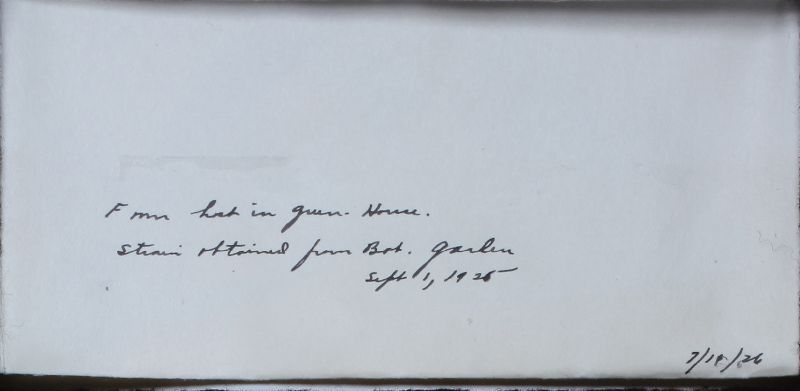 From host in green-House.
Strain obtained from Bot. Garden
Sept 1, 1925
7/19/26